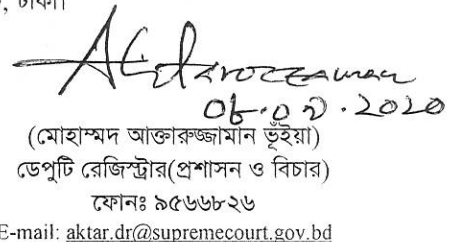 , ঢাকা।
Aktaruzzaman
(মোহাম্মদ আক্তারুজ্জামান ভূঁইয়া)
ডেপুটি রেজিস্ট্রার(প্রশাসন ও বিচার)
ফোনঃ ৯৫৬৬৮২৬
E-mail: aktar.dr@supremecourt.gov.bd